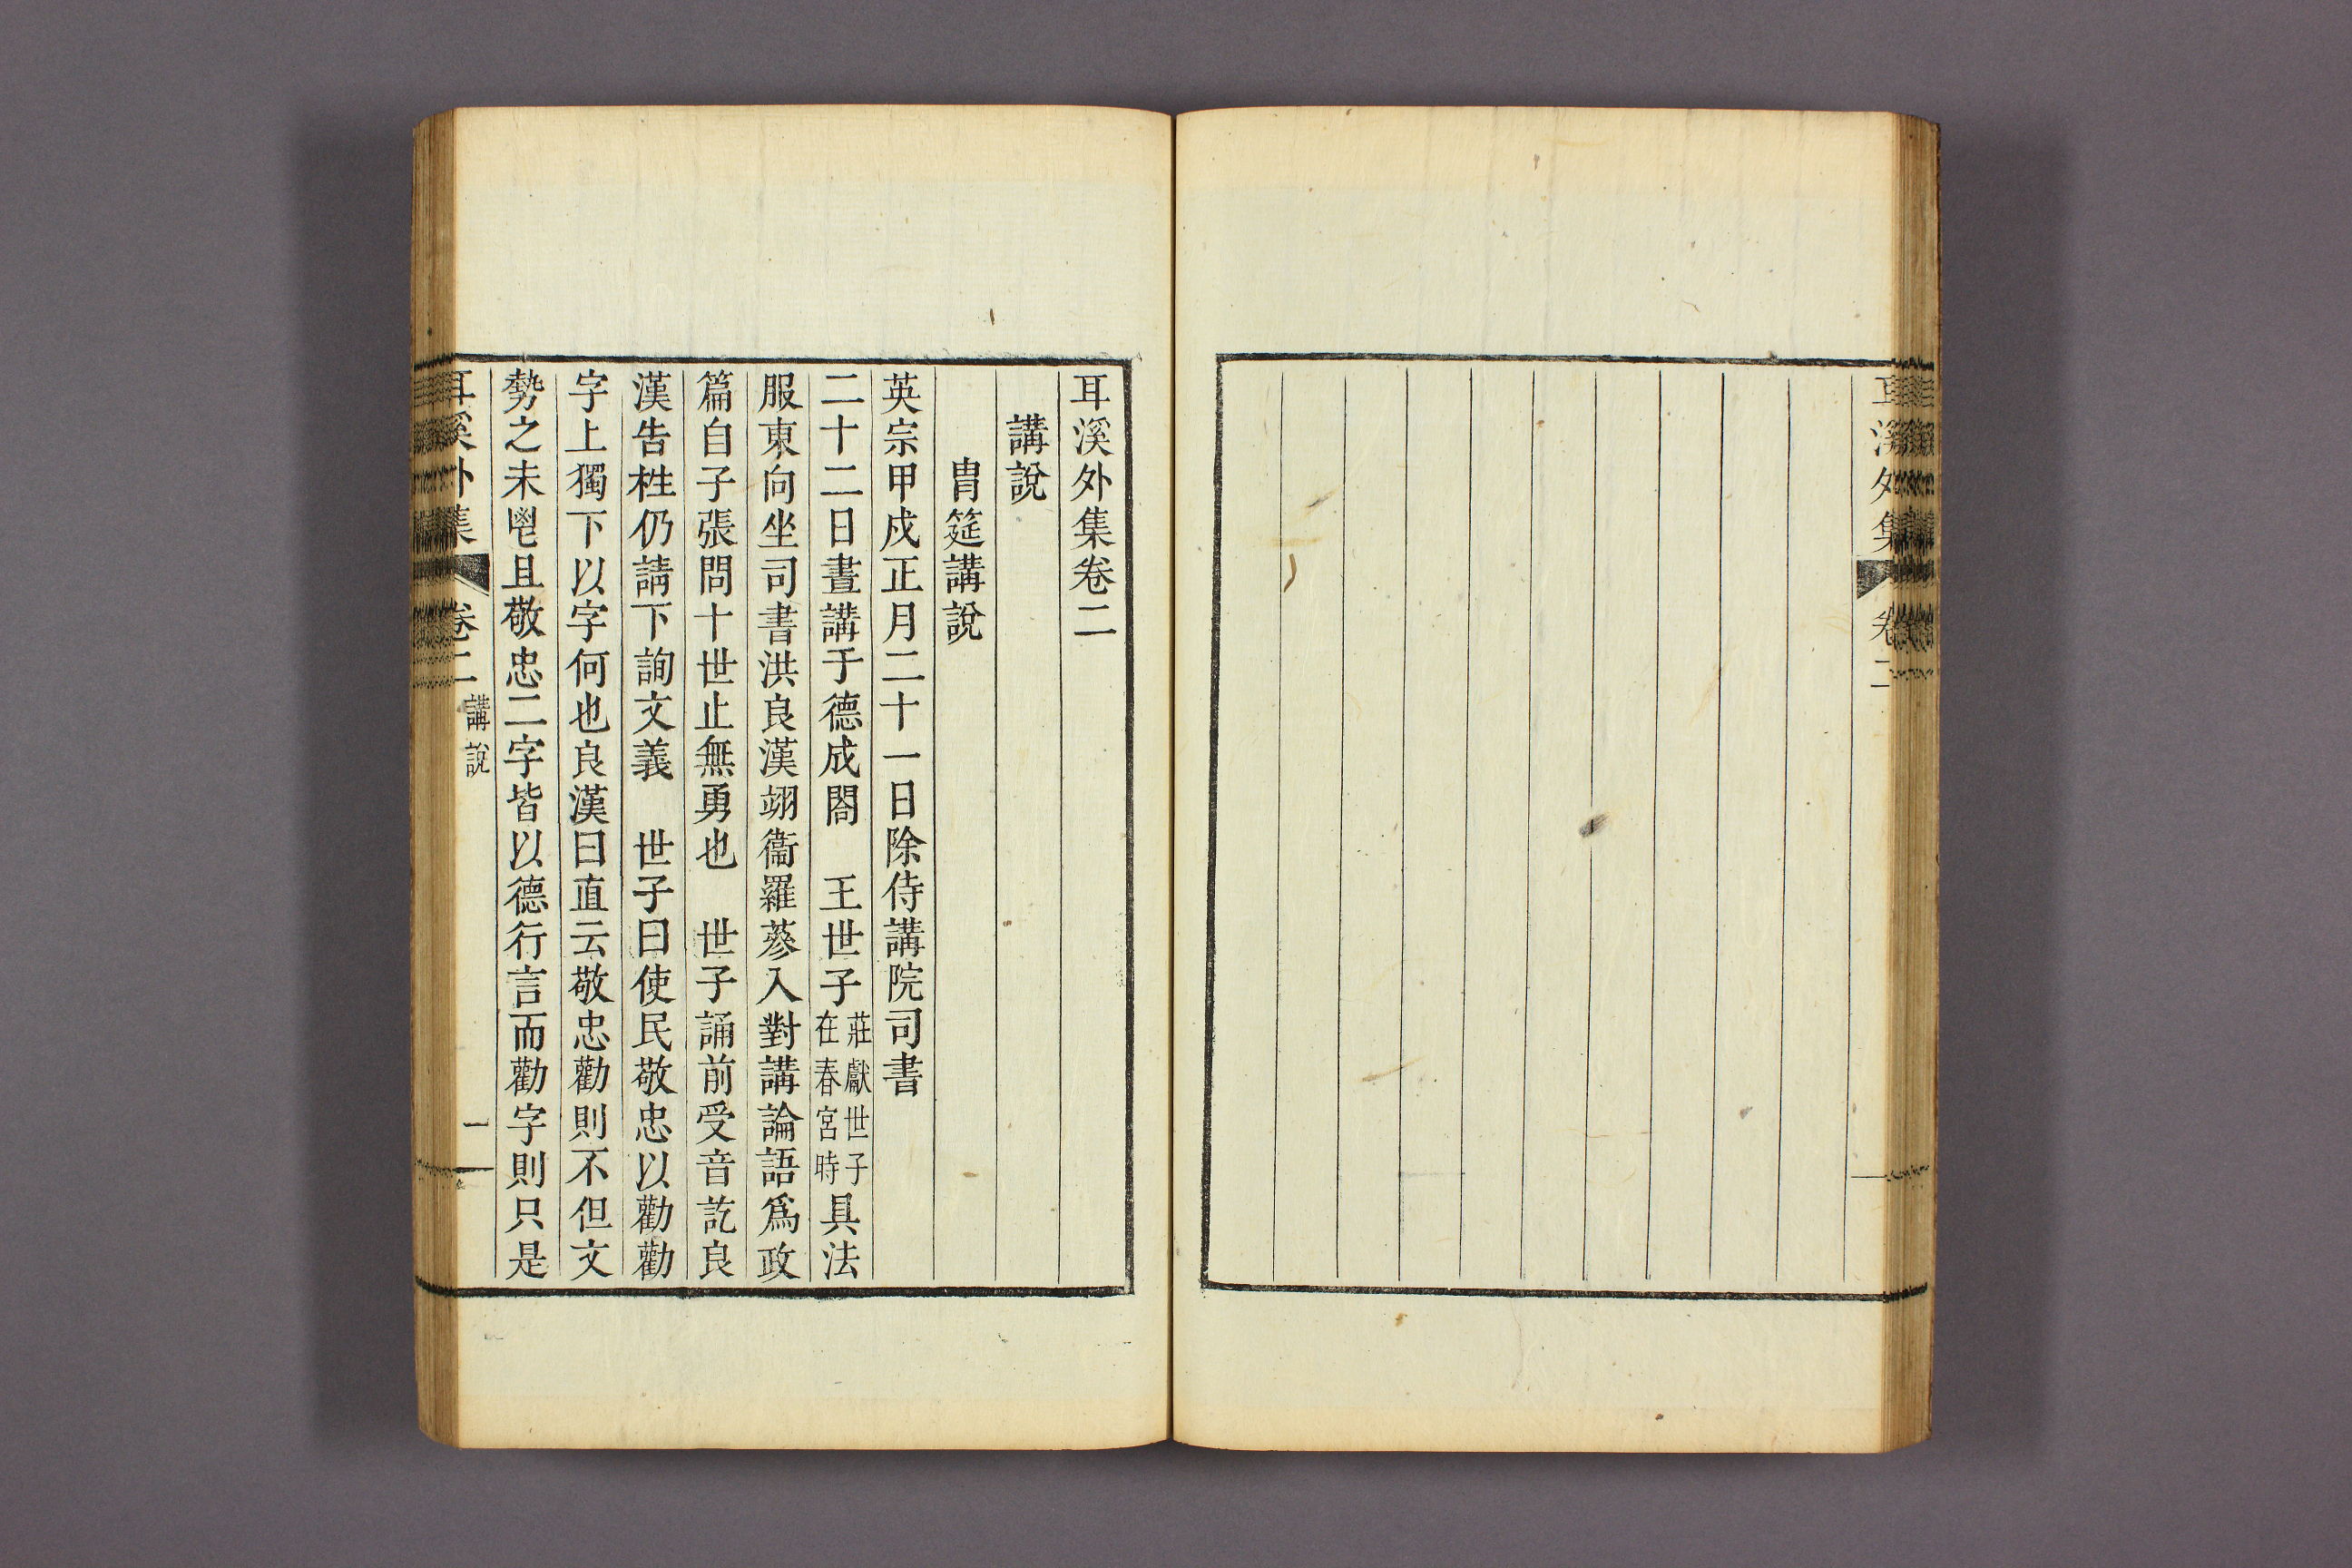 耳溪外集
卷二
耳溪外集卷二
講說
冑筵講說
英宗甲戌正月二十一日除侍講院司書
二十二日晝講于德成閤　王世子莊獻世子在春宮時具法
服東向坐司書洪良漢翊衞羅蔘入對講論語爲政
篇自子張問十世止無勇也　世子誦前受音訖良
漢告栍仍請下詢文義　世子曰使民敬忠以勸勸
字上獨下以字何也良漢曰直云敬忠勸則不但文
勢之未鬯且敬忠二字皆以德行言而勸字則只是
耳溪外集
卷二
講說
一